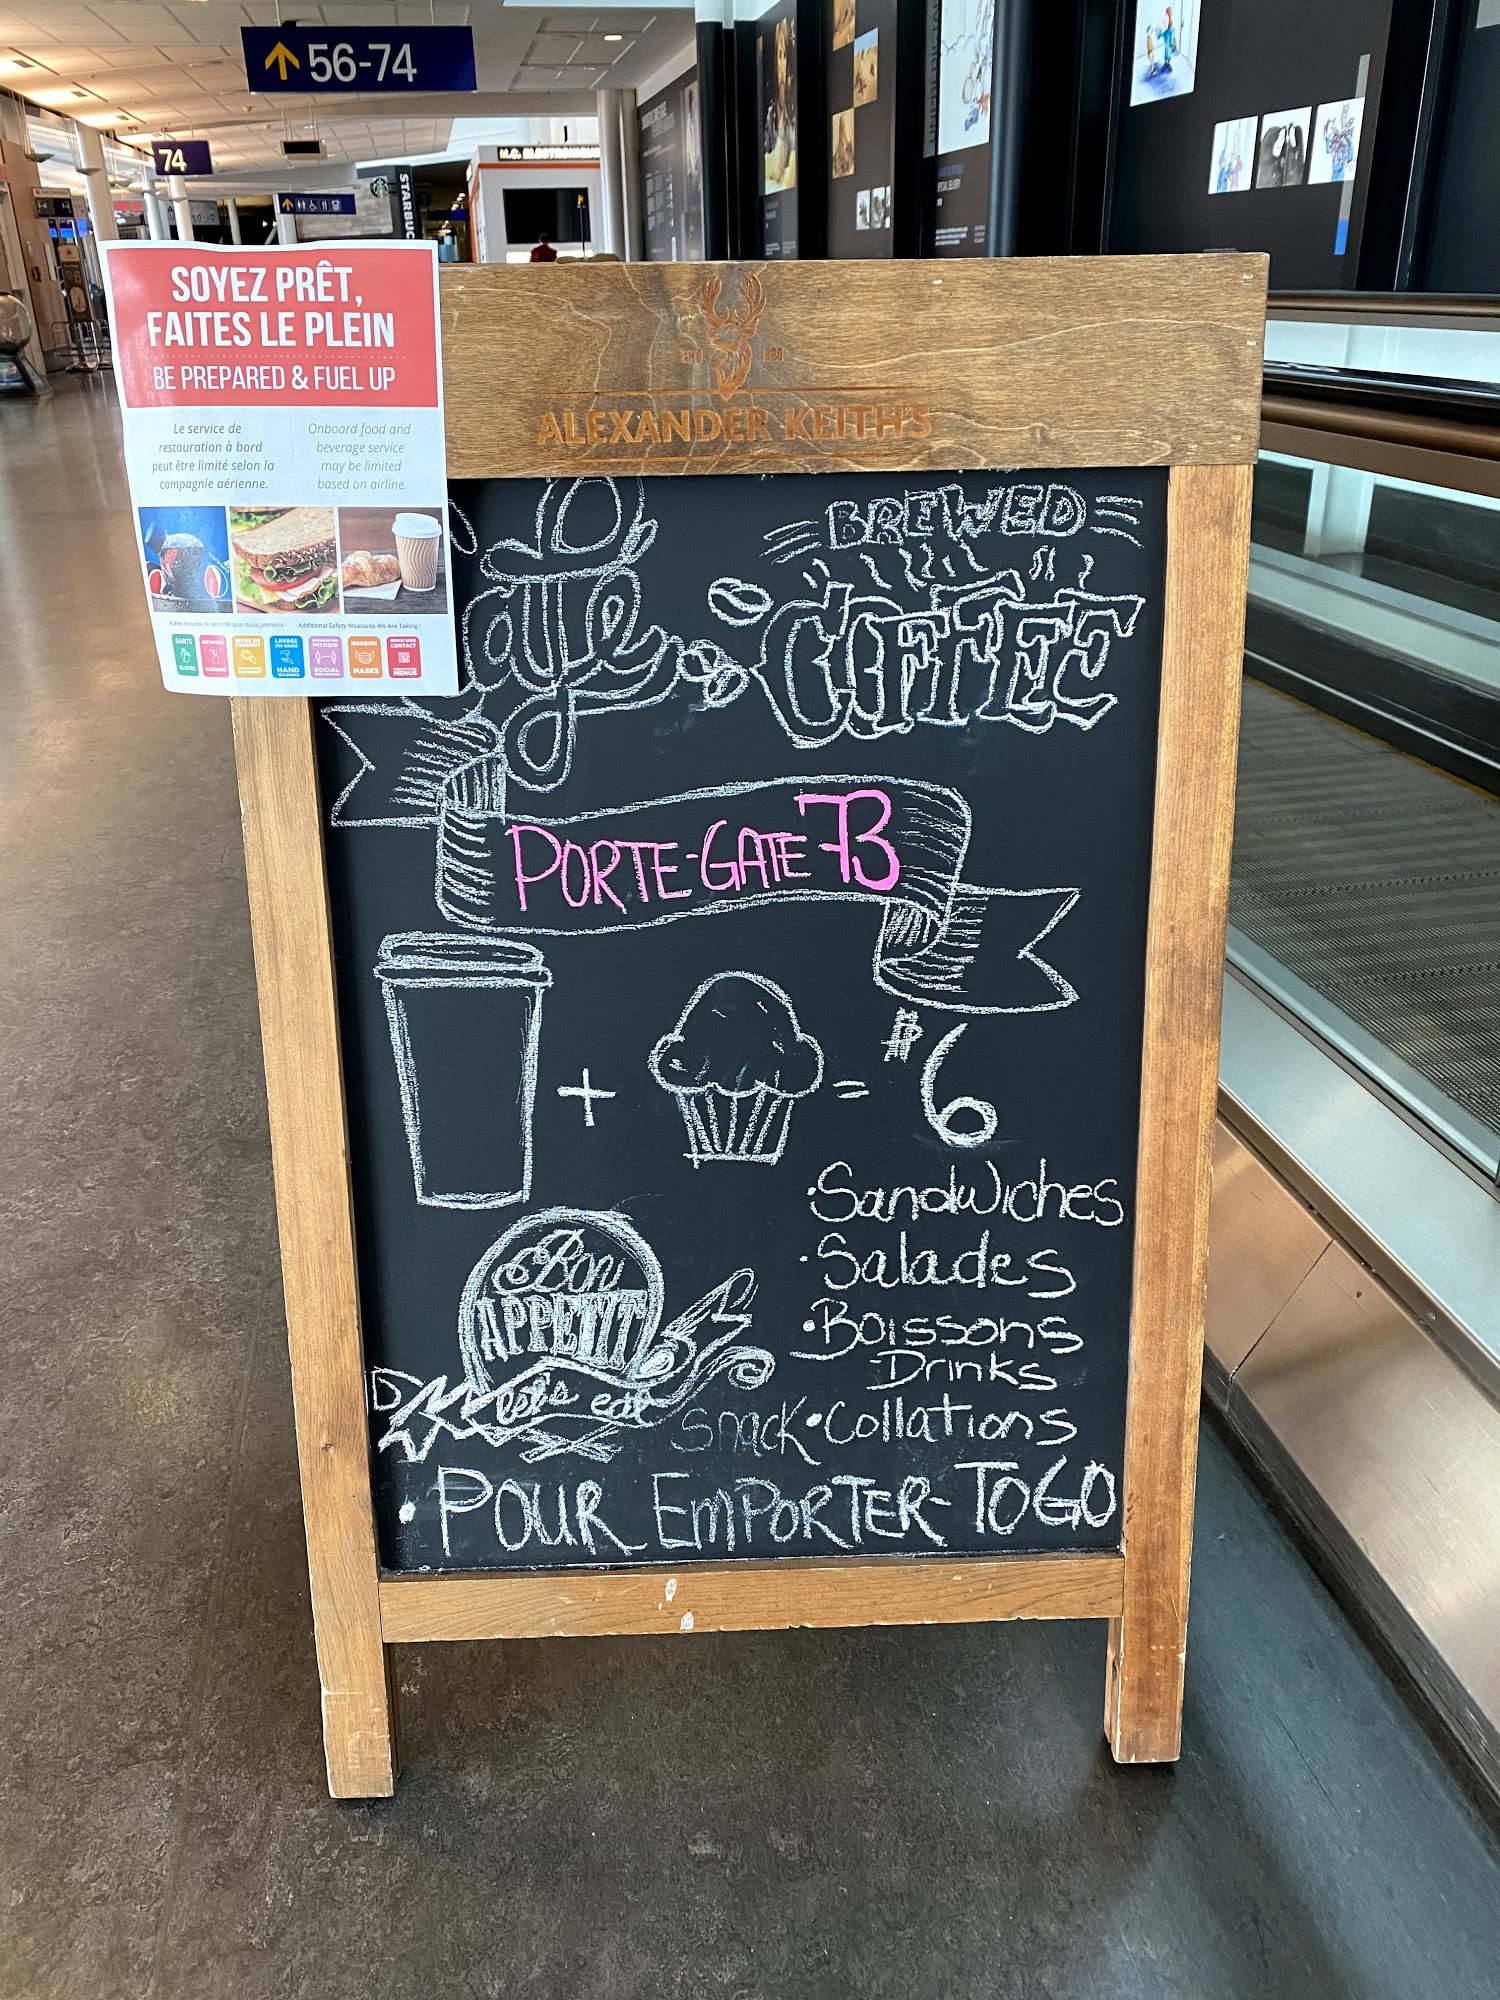 56-74
74
STARBUC
SOYEZ PRÊT,
FAITES LE PLEIN
BE PREPARED & FUEL UP
Le service de
restauration à bord
peut être limité selon la
compagnie aérienne.
Onboard food and
beverage service
may be limited
based on airline.
Autres mesures de sécurité que nous prenons :
Additional Safety Measures We Are Taking :
GANTS
GLOVES
CLEANING
PAYMENT
LAVAGE
DES MAINS
HAND
PHYSIQUE
SOCIAL
MASQUES
MASKS
CONTACT
MENUS
ALEXANDER KEITH'S
BREWED
COFFEE
PORTE-GATE 73
+ = $6
•Sandwiches
•Salades
•Boissons
Drinks
Snack•Collations
Bon
APPETIT
let's eat
•POUR EMPORTER-TOGO